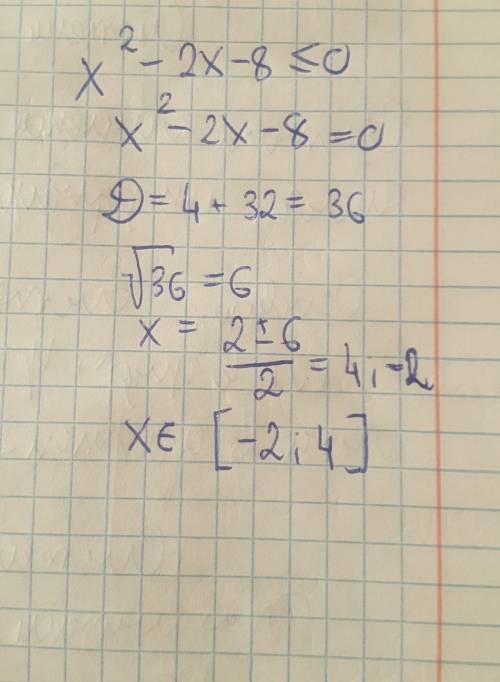 x² - 2x - 8 ≤ 0
x² - 2x - 8 = 0
D = 4 + 32 = 36
√36 = 6
x = (2 ± 6)/2 = 4; -2
x ∈ [-2; 4]